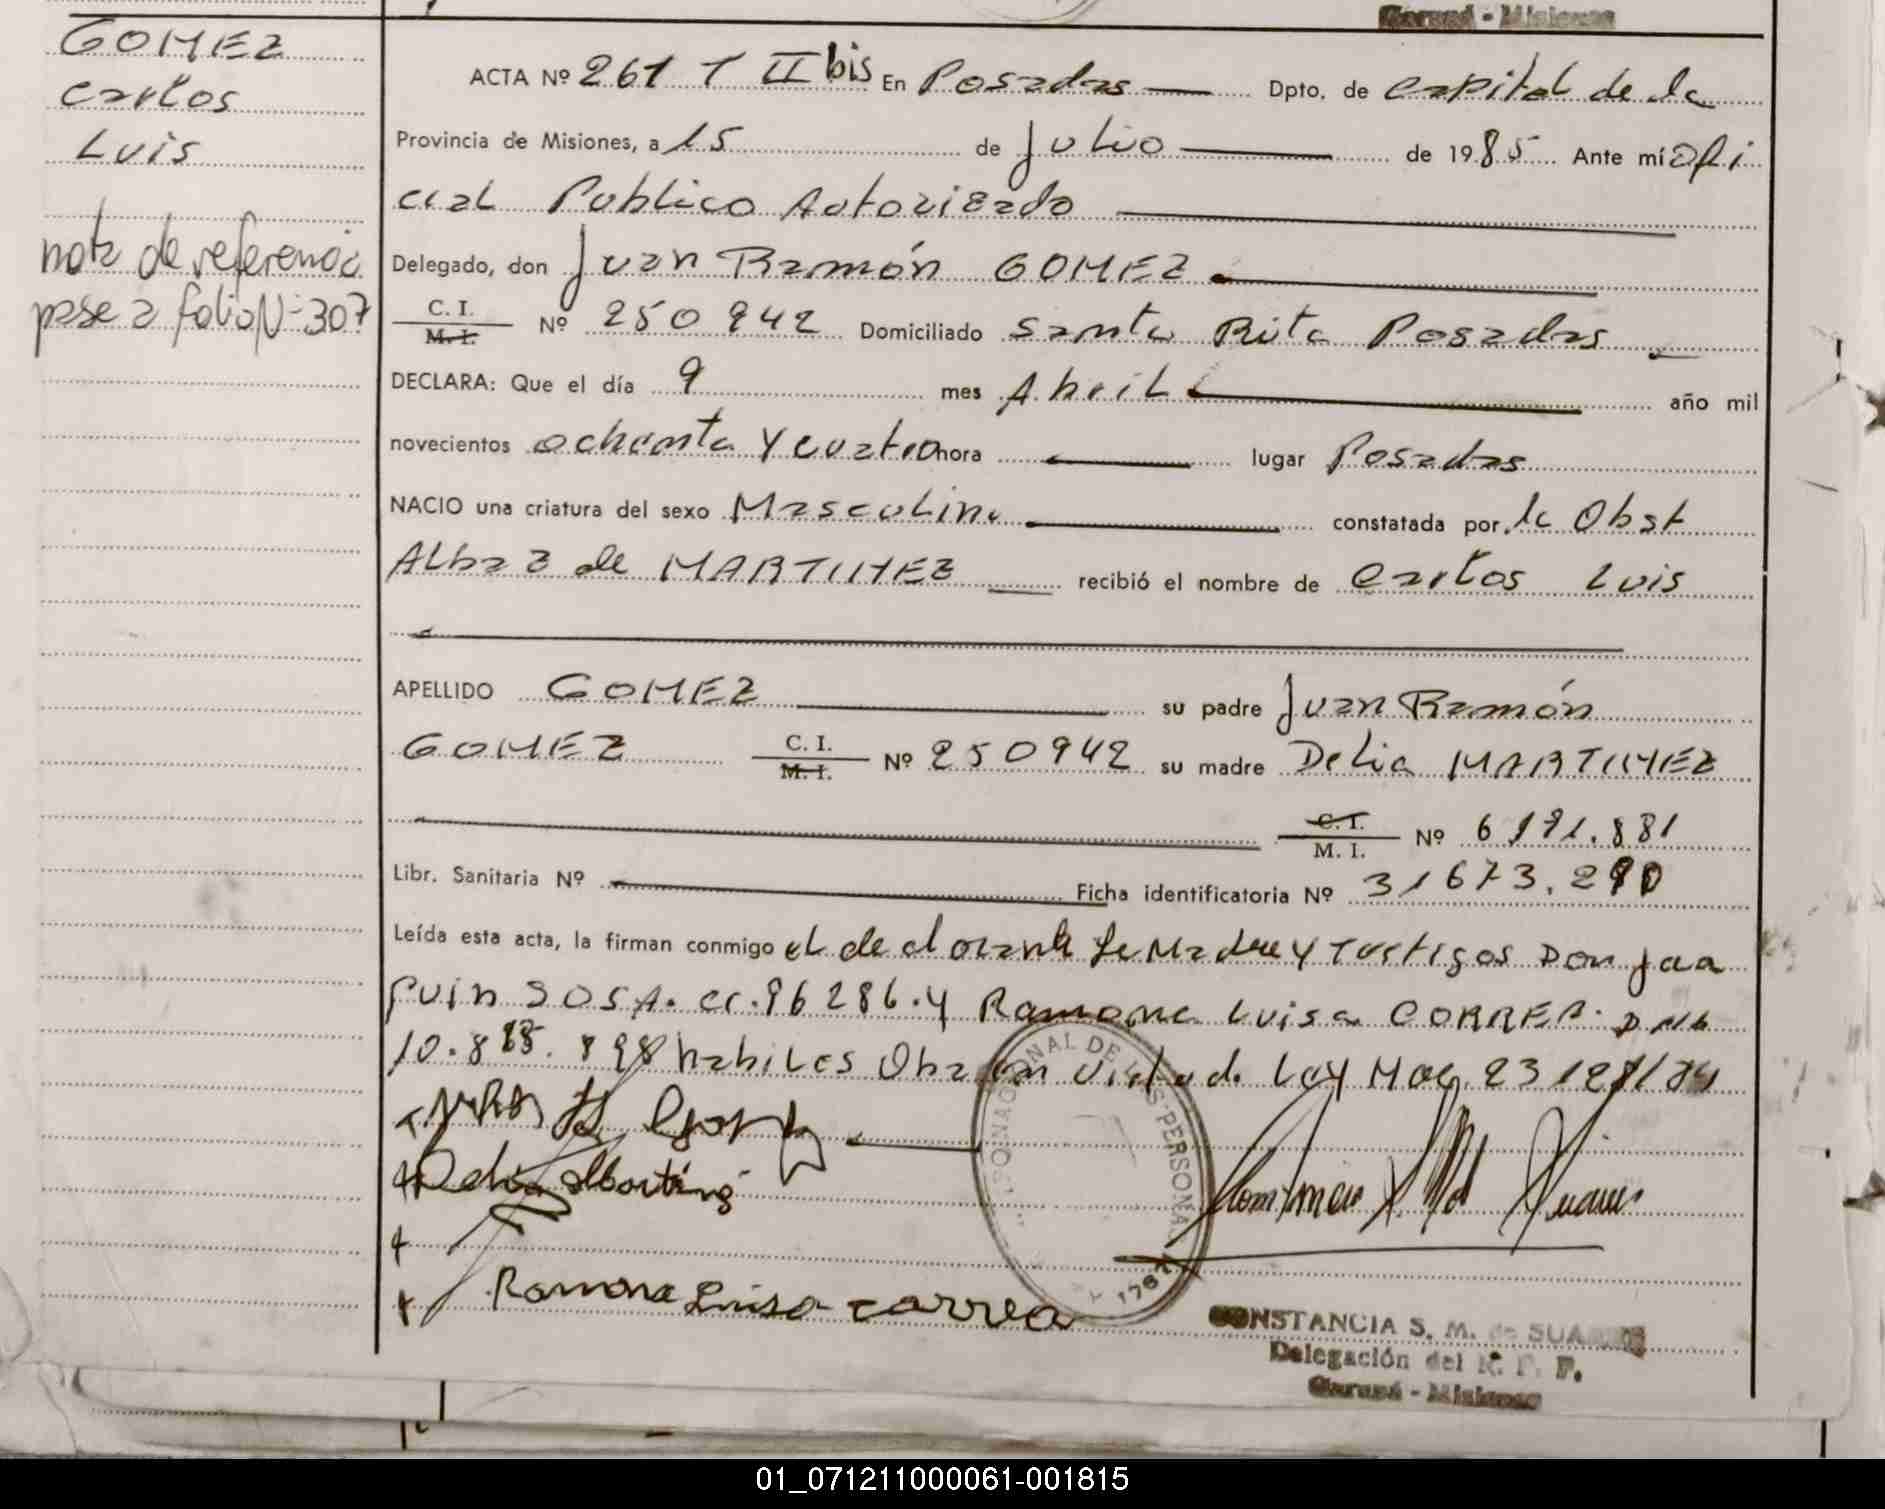 Garupá - Misiones
GOMEZ
Carlos
Luis
nota de referencia
pase a folio Nº 307
ACTA Nº 261 T II bis En Posadas Dpto. de Capital de la
Provincia de Misiones, a 15 de Julio de 1985 Ante mí Ofi
cial Publico Autorizado
Delegado, don Juan Ramón GOMEZ
C. I.
M. I. Nº 250942 Domiciliado Santa Rita Posadas
DECLARA: Que el día 9 mes Abril año mil
novecientos ochenta y cuatro hora lugar Posadas
NACIO una criatura del sexo Masculino constatada por la Obst
Alba Z de MARTINEZ recibió el nombre de Carlos Luis
APELLIDO GOMEZ su padre Juan Ramón
GOMEZ C. I.
M. I. Nº 250942 su madre Delia MARTINEZ
C. I.
M. I. Nº 6191.881
Libr. Sanitaria Nº Ficha identificatoria Nº 31673.290
Leída esta acta, la firman conmigo el declarante la Madre y Testigos Don Joa
quin SOSA. CI. 96286. y Ramona Luisa CORREA. DNI
10. habiles Obra en virtud. Ley Nac. 23128/84
Delia Martinez
Ramona Luisa Correa
NACIONAL DE LAS PERSONAS
1767
CONSTANCIA S. M. de SUAREZ
Delegación del R. P. P.
Garupá - Misiones
01_071211000061-001815